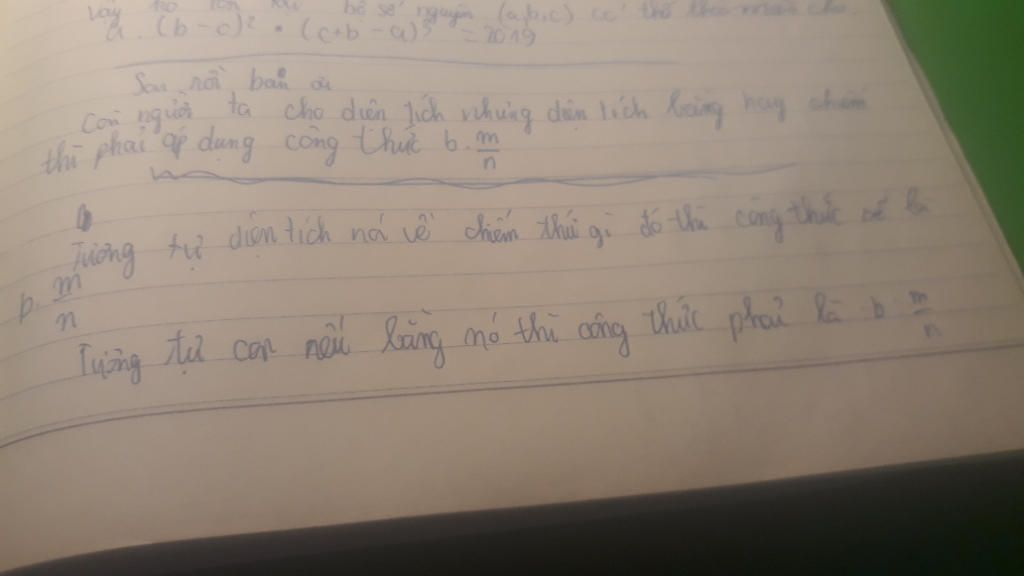 vậy hệ số nguyên (a,b,c) thỏa mãn cho
a. (b-c)² • (c+b-a)³ = 2019
Sau rồi bạn ơi
Còn người ta cho diện tích nhưng diện tích bằng hay chiếm
thì phải áp dụng công thức b. m/n
Tương tự diện tích nó về chiếm thứ gì đó thì công thức sẽ là
b. m/n
Tương tự con nếu bằng nó thì công thức phải là b m/n